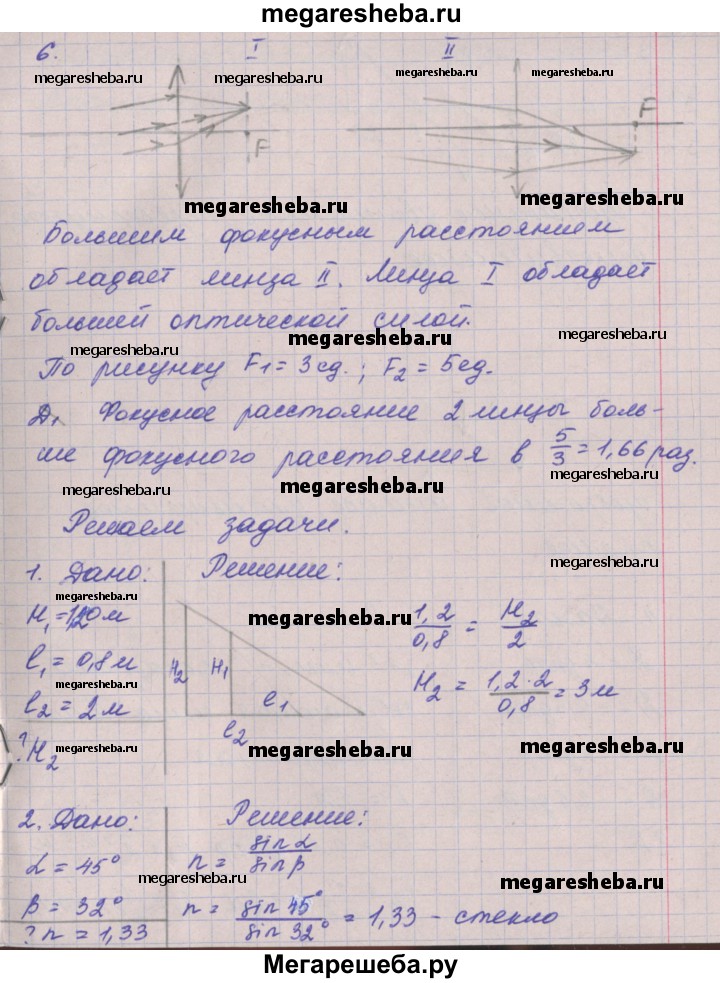 megaresheba.ru
6. I II
megaresheba.ru megaresheba.ru megaresheba.ru megaresheba.ru
F F
megaresheba.ru megaresheba.ru
Большим фокусным расстоянием
обладает линза II. Линза I обладает
большей оптической силой.
megaresheba.ru megaresheba.ru megaresheba.ru
По рисунку F1 = 3 ед.; F2 = 5 ед.
Д1 Фокусное расстояние 2 линзы боль-
ше фокусного расстояния в 5/3 = 1,66 раз.
megaresheba.ru megaresheba.ru megaresheba.ru
Решаем задачи.
megaresheba.ru
1. Дано: Решение:
H1 = 1,20 м
megaresheba.ru megaresheba.ru
1,2/0,8 = H2/2
l1 = 0,8 м
H2 H1 l1
H2 = 1,2·2/0,8 = 3 м
megaresheba.ru
l2 = 2 м
l2
? H2
megaresheba.ru megaresheba.ru megaresheba.ru
2. Дано: Решение:
α = 45°
n = sin α/sin β
megaresheba.ru megaresheba.ru
β = 32°
n = sin 45°/sin 32° = 1,33 - стекло
? n = 1,33
Мегарешеба.ру